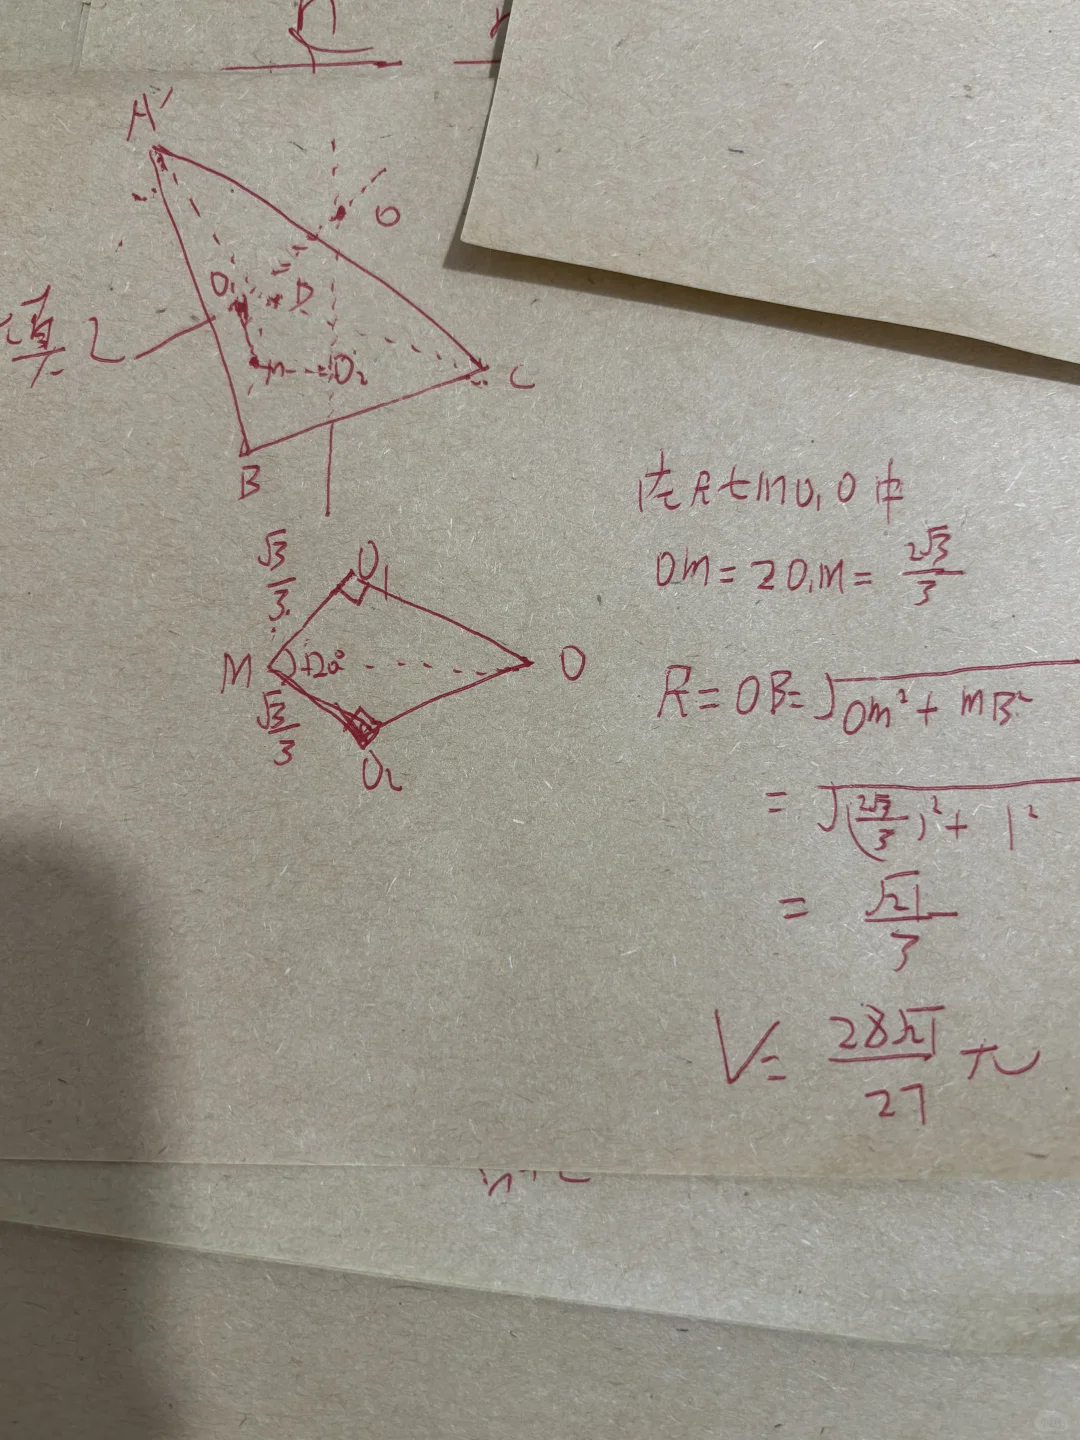 A'
O
O₁
D
M
O₂
C
B
2
√3/3
O₁
M
120°
O
√3/3
O₂
在Rt△MO₁O中
OM=2O₁M=2√3/3
R=OB=√OM²+MB²
=√(2√3/3)²+1²
=√21/3
V=28√21/27 π